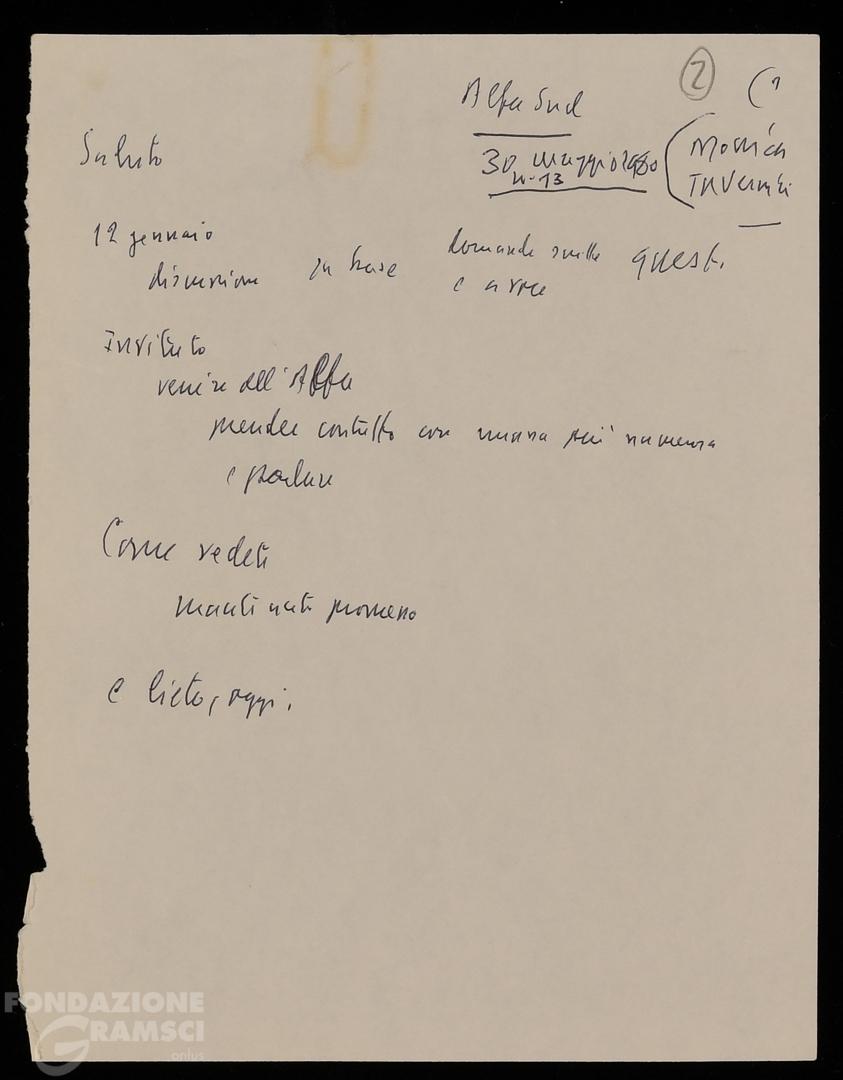 2
(1
Alfa Sud
Saluto
30 maggio 1980
11-13
Monica
Invernizi
12 gennaio
discussione in base domande scritte quest.
e a voce
Invitato
venire all'Alfa
prendere contatto con massa più numerosa
e parlare
Come vedete
mantenuto promessa
e lieto, oggi,
FONDAZIONE
GRAMSCI
onlus